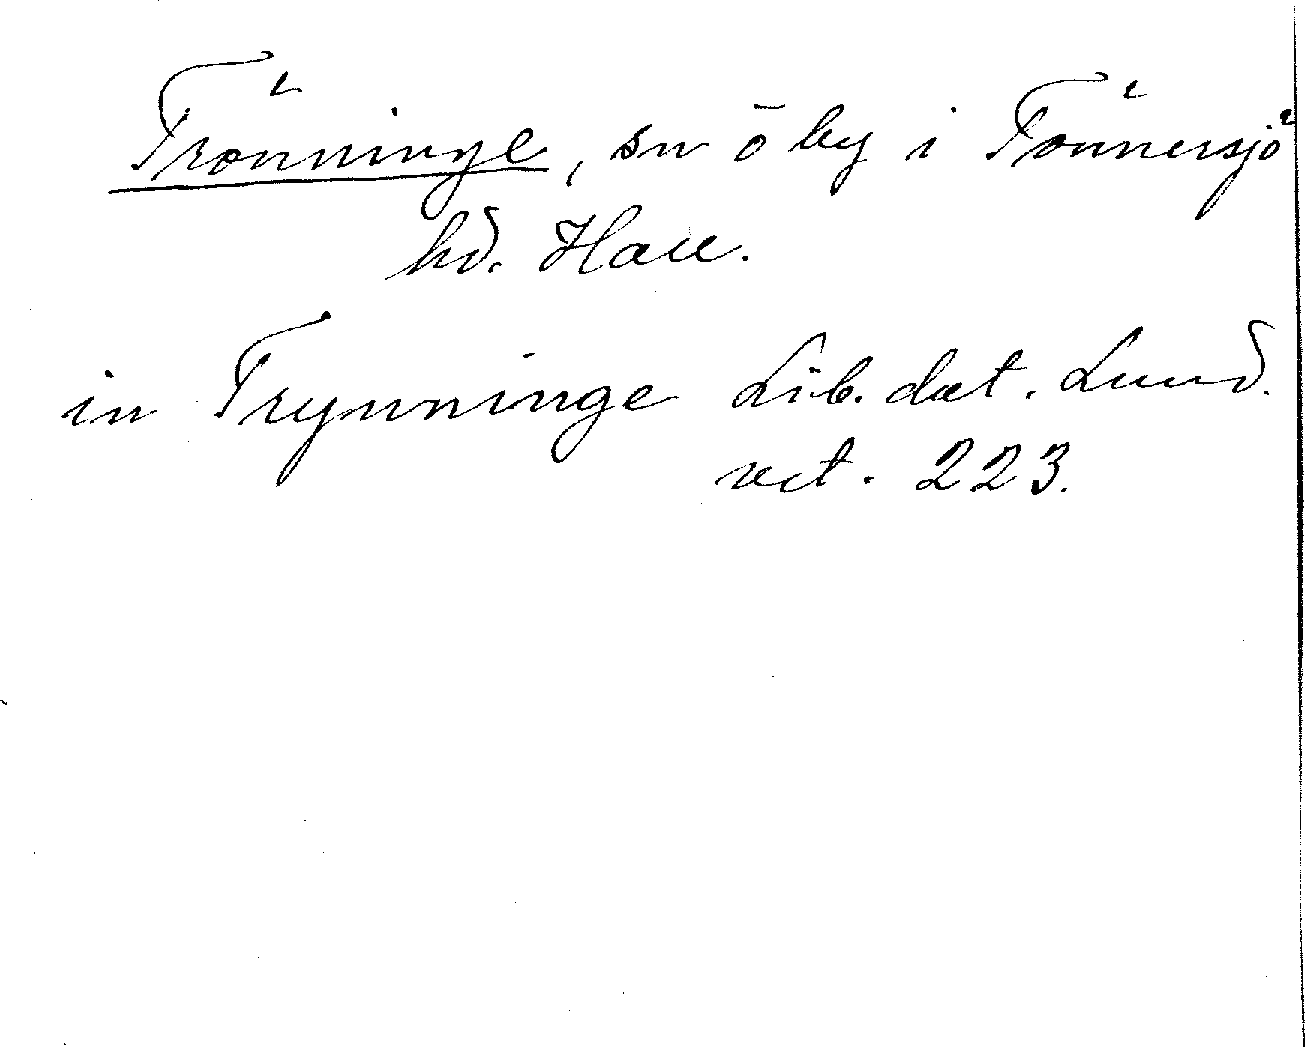 Trönninge, sn ō by i Tönnersjö
hd. Hall.
in Trynninge Lib. dat. Lund.
vet. 223.